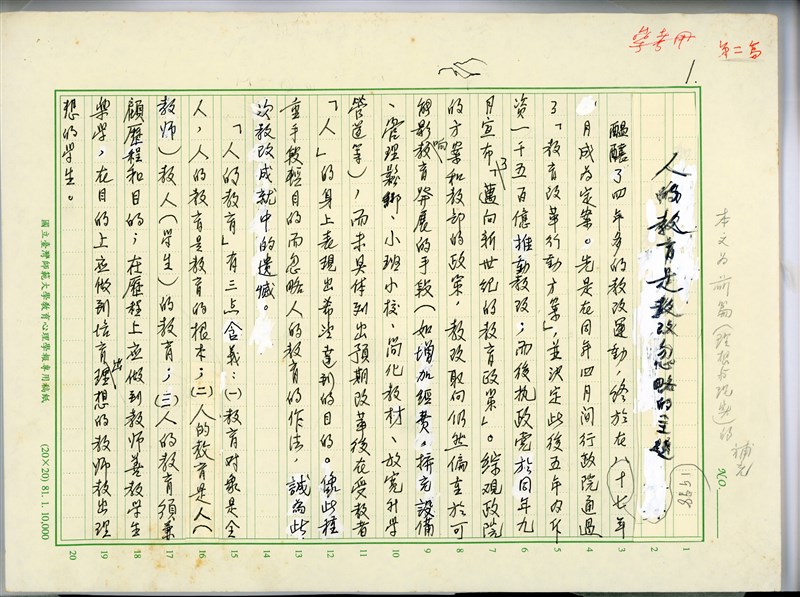 學考冊
第二篇
1.
本文為前篇(理想與現實)的補充
NO.
1998
人的教育是教改忽略的主題
醞釀了四年多的教改運動,終於在八十七年
月成為定案。先是在同年四月間行政院通過
了「教育改革行動方案」,並決定此後五年內斥
資一千五百億推動教改;而後執政黨於同年九
月宣布了「邁向新世紀的教育政策」。綜觀政院
的方案和教部的政策,教改取向仍然偏重於可
能影響教育發展的手段(如增加經費、擴充設備
、管理鬆綁、小班小校、簡化教材、放寬升學
管道等),而未具體列出預期改革後在受教者
「人」的身上表現出希望達到的目的。像此種
重手段輕目的而忽略人的教育的作法,誠為此
次教改成就中的遺憾。
「人的教育」有三点含義:(一)教育対象是全
人,人的教育是教育的根本;(二)人的教育是人(
教師)教人(學生)的教育;(三)人的教育須兼
顧歷程和目的;在歷程上应做到教師善教學生
樂學,在目的上应做到培育出理想的教師教出理
想的學生。
1
2
3
4
5
6
7
8
9
10
11
12
13
14
15
16
17
18
19
20
國立臺灣師範大學教育心理學報專用稿紙
(20×20) 81. 1. 10,000